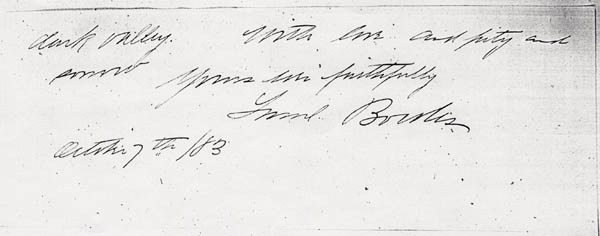 dark valley. With love and pity and
sorrow Yours ever faithfully
Saml. Bowles
October 7th /83